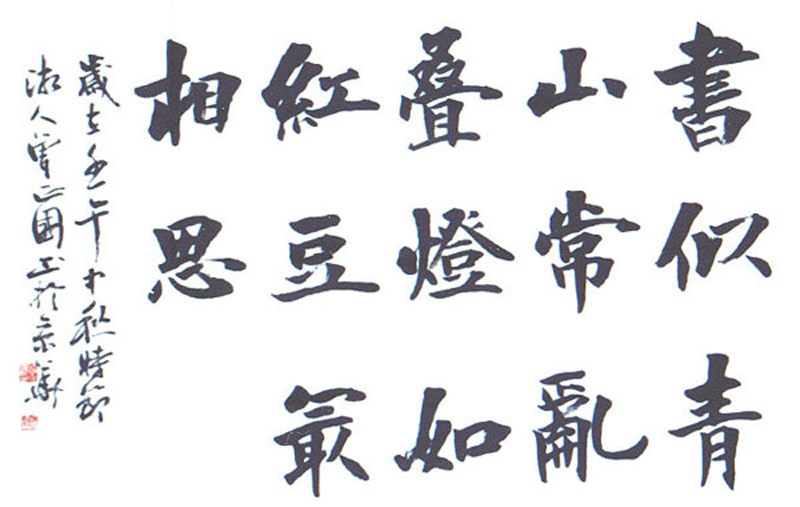 書似青
山常亂
叠燈如
紅豆冣
相思
歲在壬午中秋時節
湘人曾正國书於京華